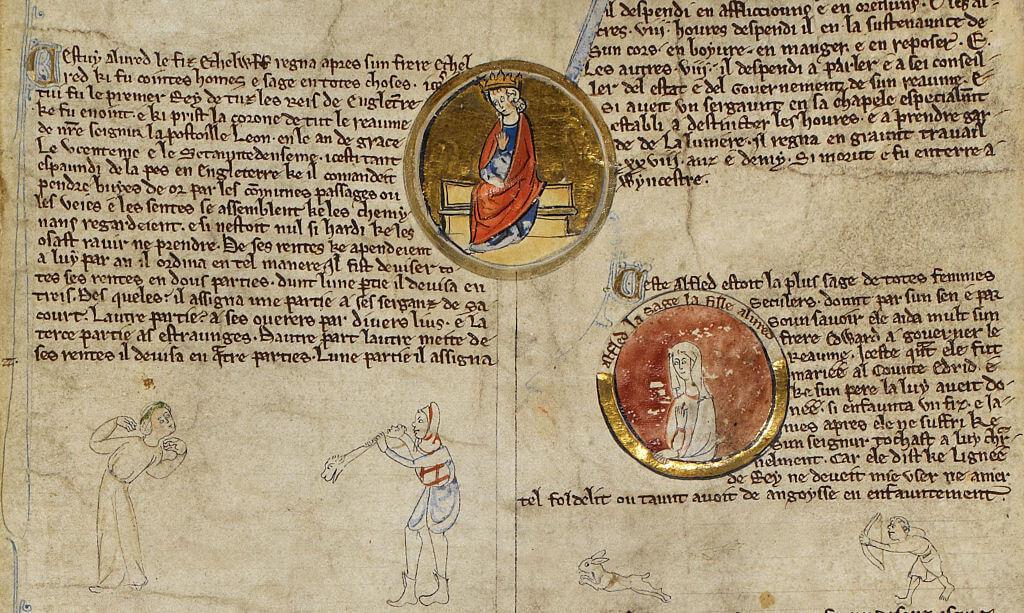 Cestuy Alured le fiz Ethelwlf regna apres sun frere Ethel
red ki fu cointes homes e sage en totes choses. ice
tui fu le premer Rey de tuz les Reis de Engletre
ke fu enoint. e ki prist la corone de tut le reaume
de nre seignur la postoille Leon. en le an de grace
Le vcentenie e le Setauntedenseme. icosti tant
espaundi de la pes en Engleterre ke il comandeit
pendre buyes de or par les comunes passages ou
les veies e les sentes se assemblent ke les chemy
nans regardeient. e si nestoit nul si hardi ke les
osast ravir ne prendre. De ses rentes ke apendeient
a luy par an il ordina en tel manere. Il fist deviser to
tes ses rentes en dous parties. dunt lune ptie il devisa en
treis. Des queles il assigna une partie a ses serganz de sa
court. Lautre partie a ses overers par divers lius. e la
terce partie as estraunges. Dautre part lautre meite de
ses rentes il devisa en qtre parties. Lune partie il assigna
il despendi en affliccioune e en oreisuns. E les al
tres. viii. houres despendi il en la sustenaunce de
Sun cors. en boyure. en manger. e en reposer. E
Les autres. viii. il despendi a parler e a sei conseil
ler del estat e del Governement de sun reaume. E
Si aveit un sergaunt en sa chapele especialmt
establi a destincter les houres. e a prendre gar
de de La lumere. Il regna en graunt travail
xxviii. anz e demy. Si morut e fu enterre a
Wyncestre.
Ceste Alfled estoit la plus sage de totes femmes
Seculers. dount par sun sen e par
Soun savoir ele aida mult sun
frere Edward a governer le
Reaume. Iceste qnt ele fut
mariee al Counte Edrid. e
ke sun pere la luy aveit do
nee. si enfaunta un fiz. e ja
mes apres ele ne suffri ke
Sun seignur tochast a luy char
nelment. Car ele dist ke Lignee
de Rey ne deveit mie user ne amer
tel foldelit ou taunt avoit de angoysse en enfauntement.
alfled la sage la fille alured